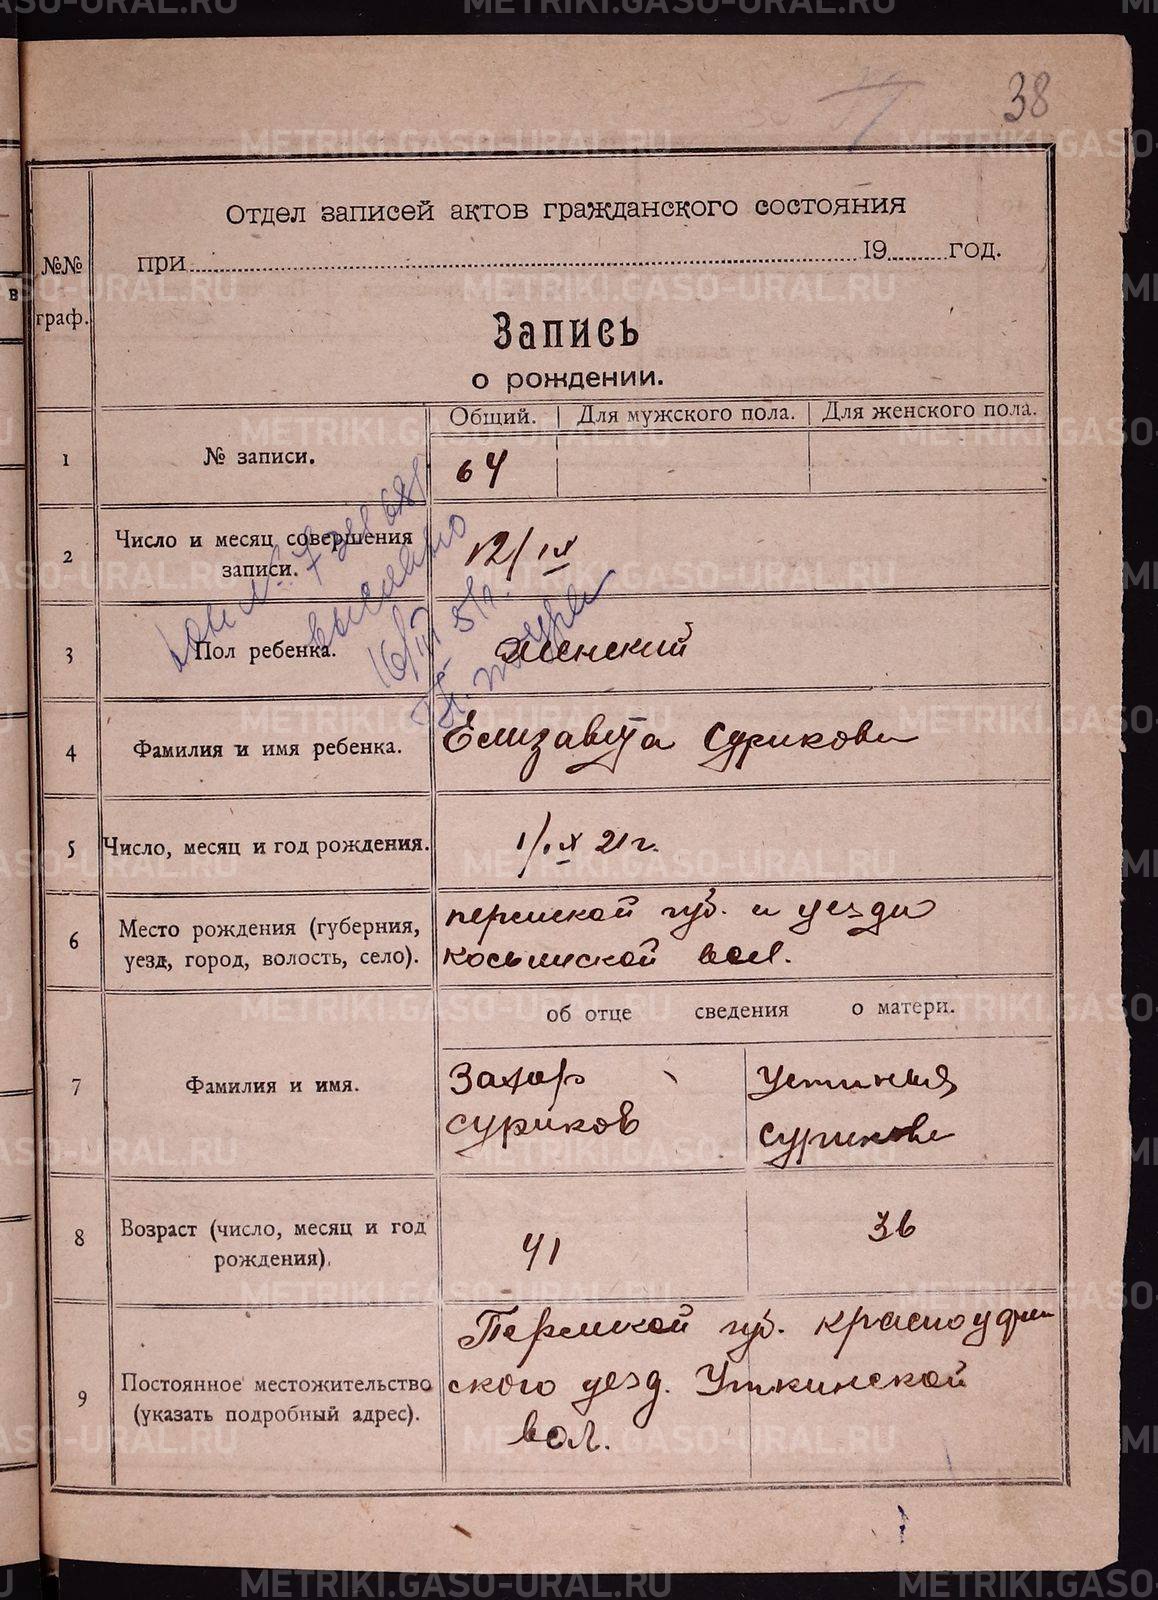 38
Отдел записей актов гражданского состояния
при 19 год.
№№ граф.
Запись
о рождении.
Общий. Для мужского пола. Для женского пола.
1 № записи. 64
2 Число и месяц совершения записи. 12/IX
3 Пол ребенка. женский
выслано
4 Фамилия и имя ребенка. Елизавета Сурикова
5 Число, месяц и год рождения. 1/IX 21 г.
6 Место рождения (губерния, уезд, город, волость, село).
пермской губ. и уезда
косьинской вол.
об отце сведения о матери.
7 Фамилия и имя.
Захар Устинья
суриков сурикова
8 Возраст (число, месяц и год рождения). 41 36
9 Постоянное местожительство (указать подробный адрес).
Пермской губ. красноуфим
ского уезд. Уткинской
вол.
METRIKI.GASO-URAL.RU